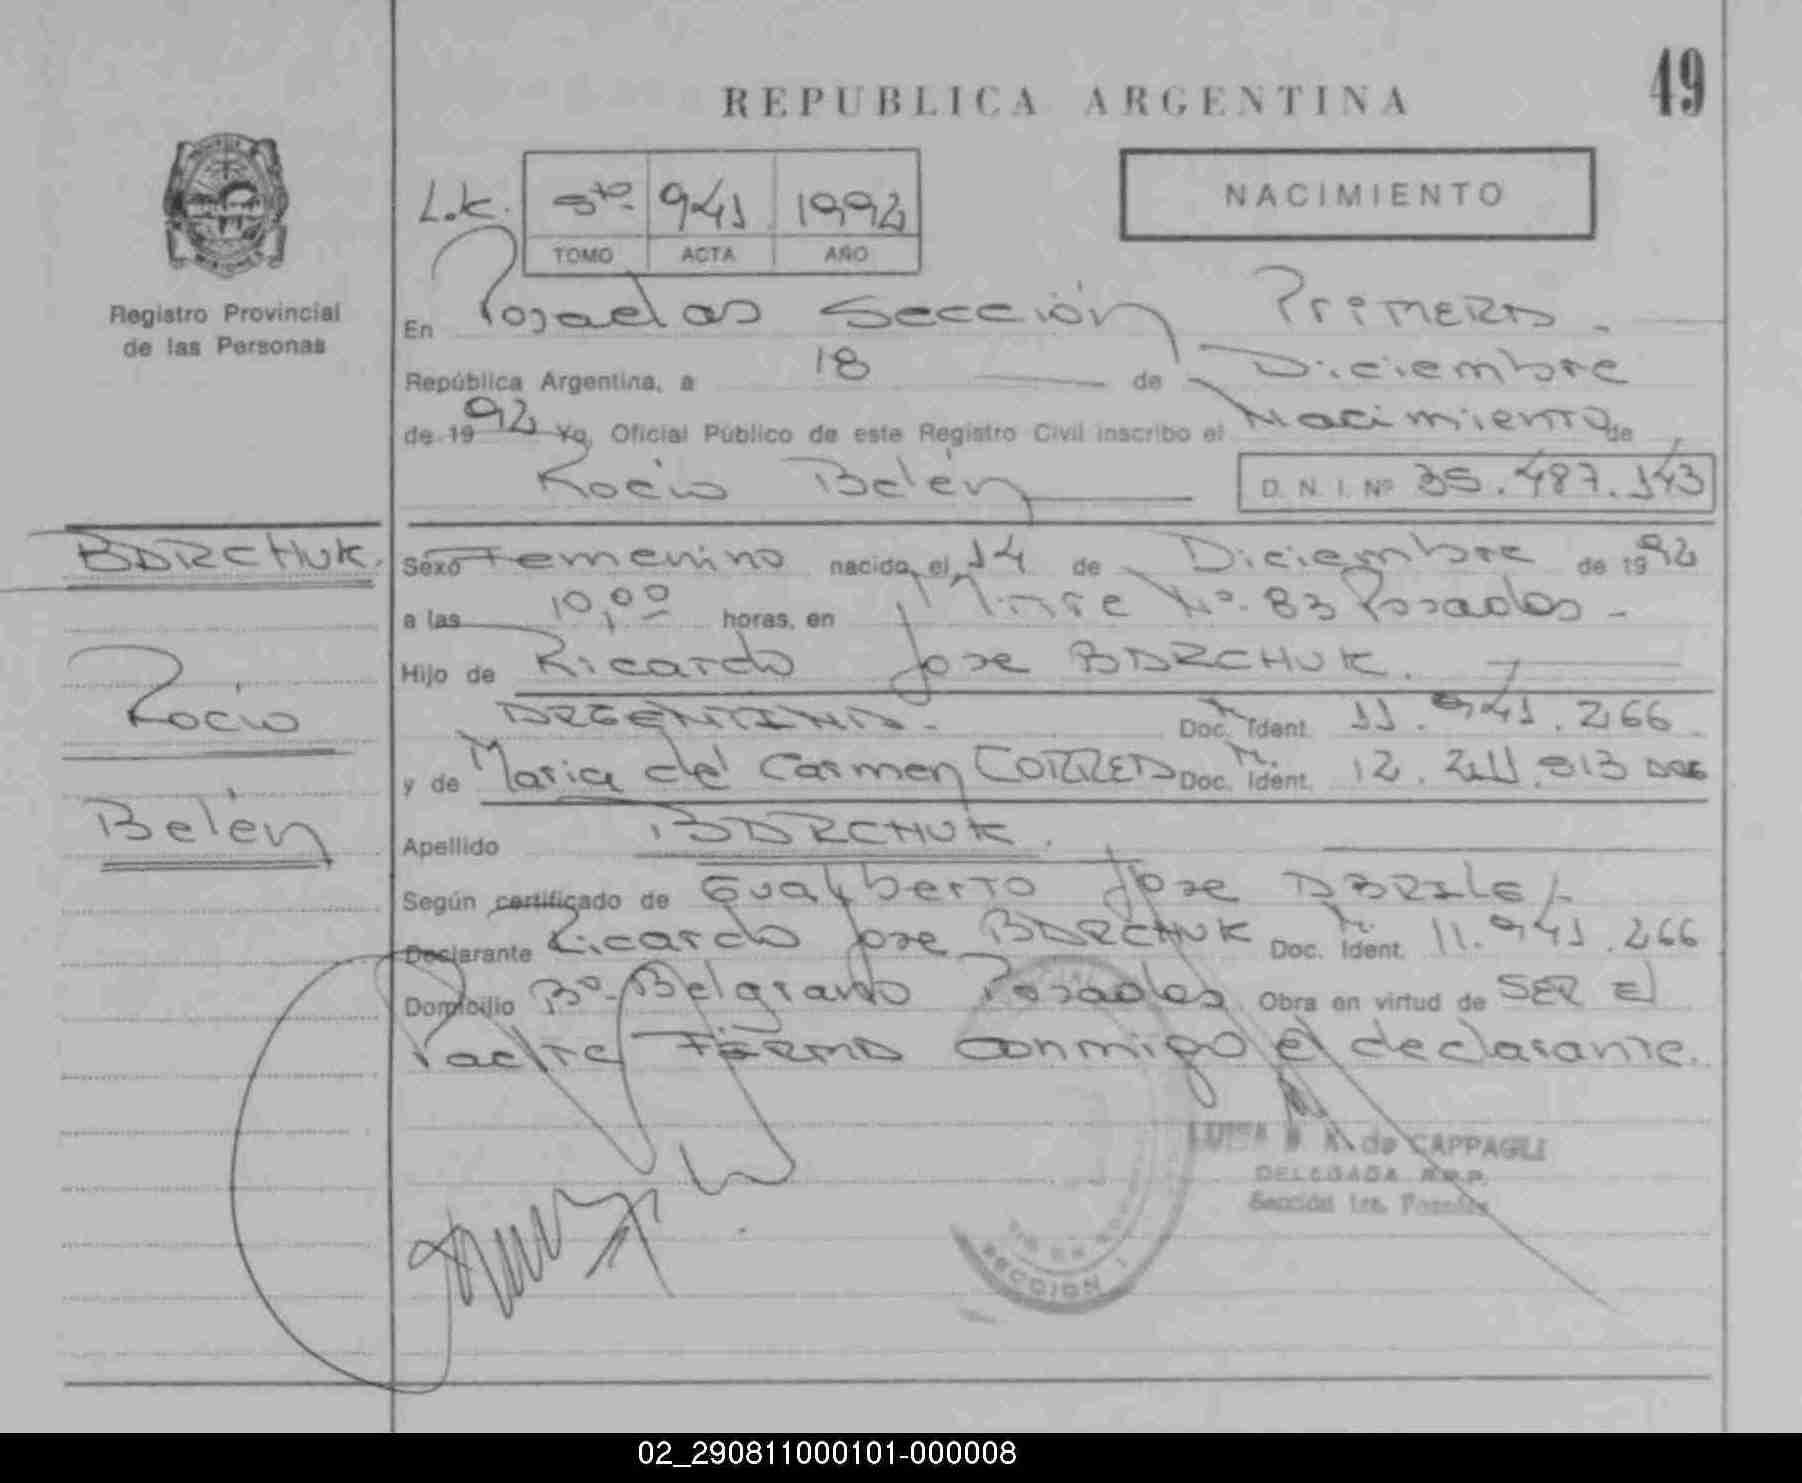 49
REPUBLICA ARGENTINA
NACIMIENTO
L.K. 5to 941 1992
TOMO ACTA AÑO
Registro Provincial
de las Personas
En Posadas Sección Primera.
República Argentina, a 18 de Diciembre
de 1992 Yo, Oficial Público de este Registro Civil inscribo el Nacimiento de
Rocio Belén D. N. I. Nº 35.487.143
BARCHUK.
Rocio
Belén
Sexo Femenino nacido el 14 de Diciembre de 1992
a las 10,00 horas, en Nº 83 Posadas -
Hijo de Ricardo Jose BARCHUK.
ARGENTINA. Doc. Ident. M. 11.941.266
y de Maria del Carmen CORREA Doc. Ident. M. 12.211.913 ARG
Apellido BARCHUK.
Según certificado de Gualberto Jose ABRILE.
Declarante Ricardo Jose BARCHUK Doc. Ident. M. 11.941.266
Domicilio Bº Belgrano Posadas. Obra en virtud de SER El
Padre FIRMA conmigo el declarante.
LUISA K. de CAPPAGLI
DELEGADA R.P.P.
Sección 1ra. Posadas
SECCION 1
02_290811000101-000008